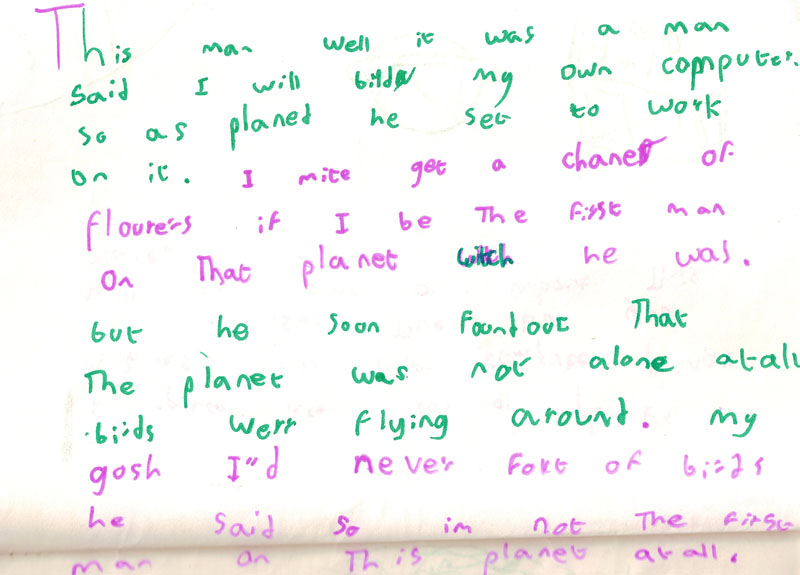 This man well it was a man
said I will bild my own computer.
so as planed he set to work
on it. I mite get a chanes of
flourers if I be The first man
On That planet witch he was.
but he soon found out That
The planet was not alone atall
birds werr flying around. my
gosh I"d never fort of birds
he said so im not The first
man on This planet atall.